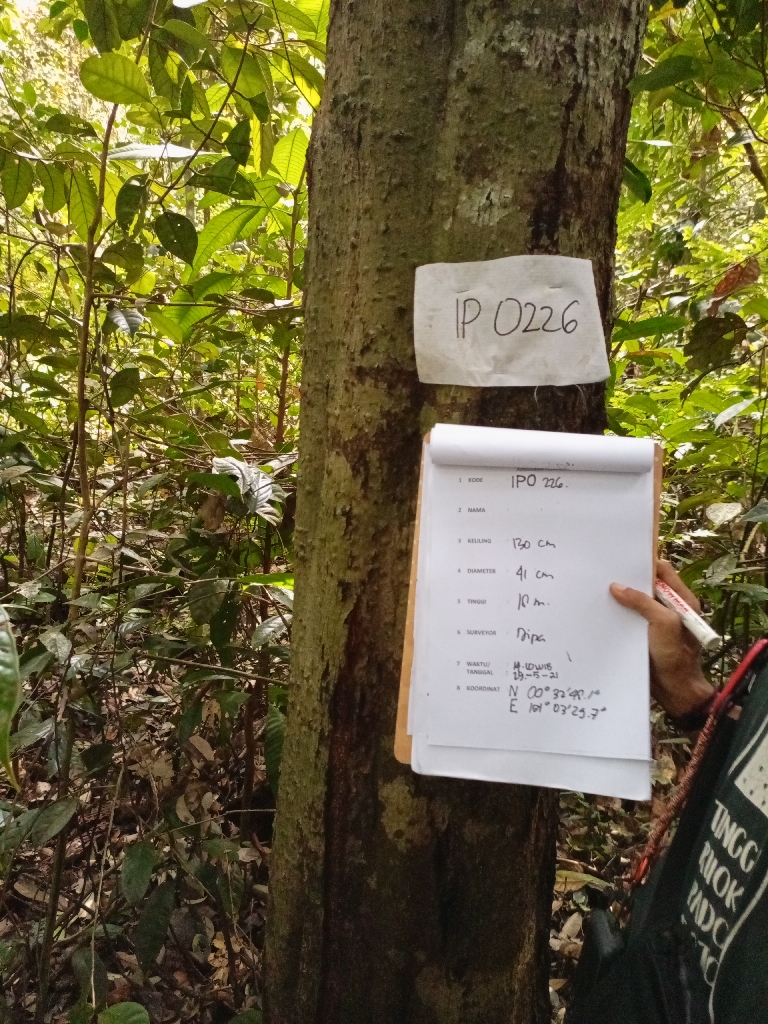 IP 0226
1 KODE IPO 226.
2 NAMA
3 KELILING : 130 cm
4 DIAMETER : 41 cm
5 TINGGI : 18 m.
6 SURVEYOR : Dipa
7 WAKTU/
TANGGAL : 29-5-21
8 KOORDINAT N 00° 32' 48.1"
E 101° 03' 29.7"
TINGG